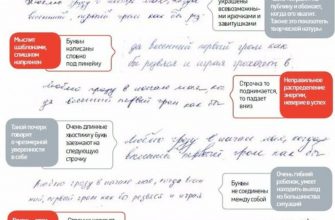 Люблю грозу в начале мая, когда
весенний, первый гром как бы рез
украшены
всевозможны-
ми крючками и
завитушками
публику и обожает,
когда его хвалят.
Также это показатель
творческой натуры
Мыслит
шаблонами,
слишком
напряжен
Буквы
написаны
словно
под линейку
да весенний первый гром как
бы резвяся и играя грохочет в
Люблю грозу в начале мая, ко
гда весенний первый гром как бы
Строчка то
поднимается,
то падает
вниз
Неправильное
распределение
энергии,
неверие в успех
Такой почерк
говорит
о чрезмерной
уверенности в
себе
Очень длинные
хвостики у букв
заезжают на
следующую
строчку
Люблю грозу в начале мая, когда
весенний первый гром как бы
Люблю грозу в начале мая, когда весен
ний, первый гром как бы резвяся и играя
Буквы
не соединены
между собой
Очень гибкий
ребенок, умеет
находить выход
из большинства
ситуаций